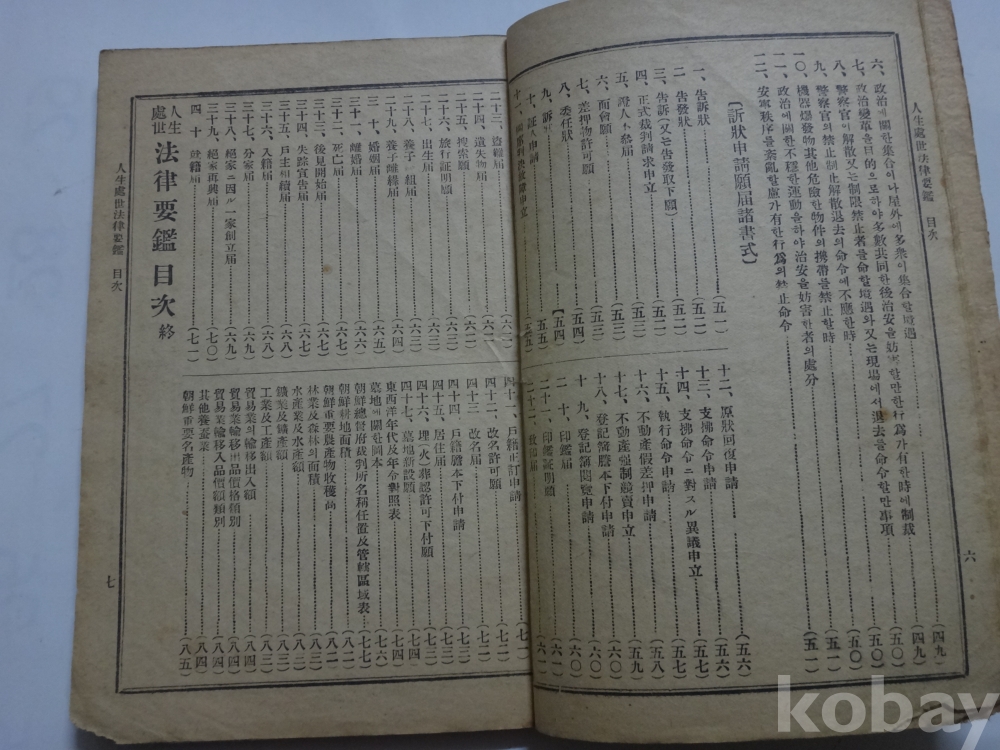 人生處世法律要鑑 目次
六
六、政治에關한集合이나屋外에多衆이集合할境遇(四九)
七、政治變革을目的으로하야多數共同한後治安을妨害할만한行爲가有한時에制裁(五〇)
八、警察官이解散又는制限禁止者를命할境遇와又는現場에서退去를命令할만事項(五〇)
九、警察官의禁止解散退去의命令에不應한時(五〇)
一〇、機器爆發物其他危險한物件의携帶를禁止할時(五一)
一一、政治에關한不穩한運動을하야治安을妨害한者의處分(五一)
一二、安寧秩序를紊亂할處가有한行爲의禁止命令(五一)
〔訴狀申請願届諸書式〕
一、告訴狀(五一)
二、告發狀(五二)
三、告訴(又는告發取下願)(五二)
四、正式裁判請求申立(五三)
五、證人不參届(五三)
六、面會願(五三)
七、差押物許可願(五四)
八、委任狀(五四)
九、訴狀(五五)
十、証人申請
十二、原狀回復申請(五六)
十三、支拂命令申請(五六)
十四、支拂命令ニ對スル異議申立(五七)
十五、執行命令申請(五八)
十六、不動產假差押申請(五九)
十七、不動產强制競賣申立(五九)
十八、登記簿謄本下付申請(六〇)
十九、登記簿閱覽申請(六〇)
二十、印鑑届(六一)
二十一、印鑑証明願(六一)
二十二、改印届(六一)
二十三、盜難届(六二)
二十四、遺失物届(六二)
二十五、搜索願
二十六、旅行証明願
二十七、出生届(六三)
二十八、養子緣組届(六四)
二十九、養子離緣届(六四)
三十、婚姻届(六五)
三十一、離婚届(六六)
三十二、死亡届(六七)
三十三、後見開始届(六七)
三十四、失踪宣告届(六七)
三十五、戶主相續届(六八)
三十六、入籍届(六八)
三十七、分家届(六九)
三十八、絕家ニ因ル一家創立届(六九)
三十九、絕家再興届(七〇)
四十、就籍届(七一)
四十一、戶籍訂正申請(七一)
四十二、改名許可願(七二)
四十三、改名届(七二)
四十四、戶籍謄本下付申請(七三)
四十五、居住届(七三)
四十六、埋(火)葬認許可下付願(七三)
四十七、墓地新設願(七四)
東西洋年代及年令對照表(七四)
墓地에關한圖本(七六)
朝鮮總督府裁判所名稱任置及管轄區域表(七七)
朝鮮耕地面積(八二)
朝鮮重要農產物收穫高(八二)
林業及森林의面積(八二)
水產業及水產額(八三)
鑛業及鑛產額(八三)
工業及工產額(八三)
貿易業의輸移出入額(八四)
貿易業輸移出品價格類別(八四)
貿易業輸移入品價額類別(八四)
其他養蚕業(八四)
朝鮮重要名產物(八五)
人生
處世 法律要鑑目次 終
人生處世法律要鑑 目次
七
kobay